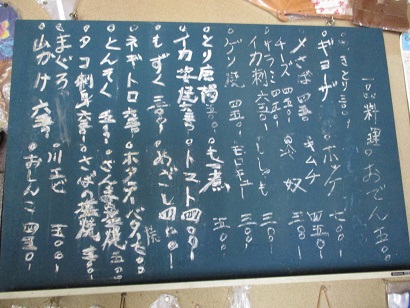 一品料理。おでん 五〇〇
やきとり 三五〇 ホッケ 七〇〇
ギョーザ キムチ 四五〇
〆さば 四五〇 冷奴 三五〇
チーズ 四五〇
サラミ 四五〇 ししゃも
イカ刺 六五〇
ゲソ焼 四五〇 モロキュー 五〇〇
とり唐揚 もつ煮
イカ姿焼 トマト 四〇〇
もずく 三〇〇 めざし 四〇〇
ネギトロ ホタテバター焼
とんそく さんま塩焼 五〇〇
タコ刺身 六五〇 さば塩焼 五〇〇
まぐろ 川エビ 五〇〇
山かけ おしんこ 四五〇